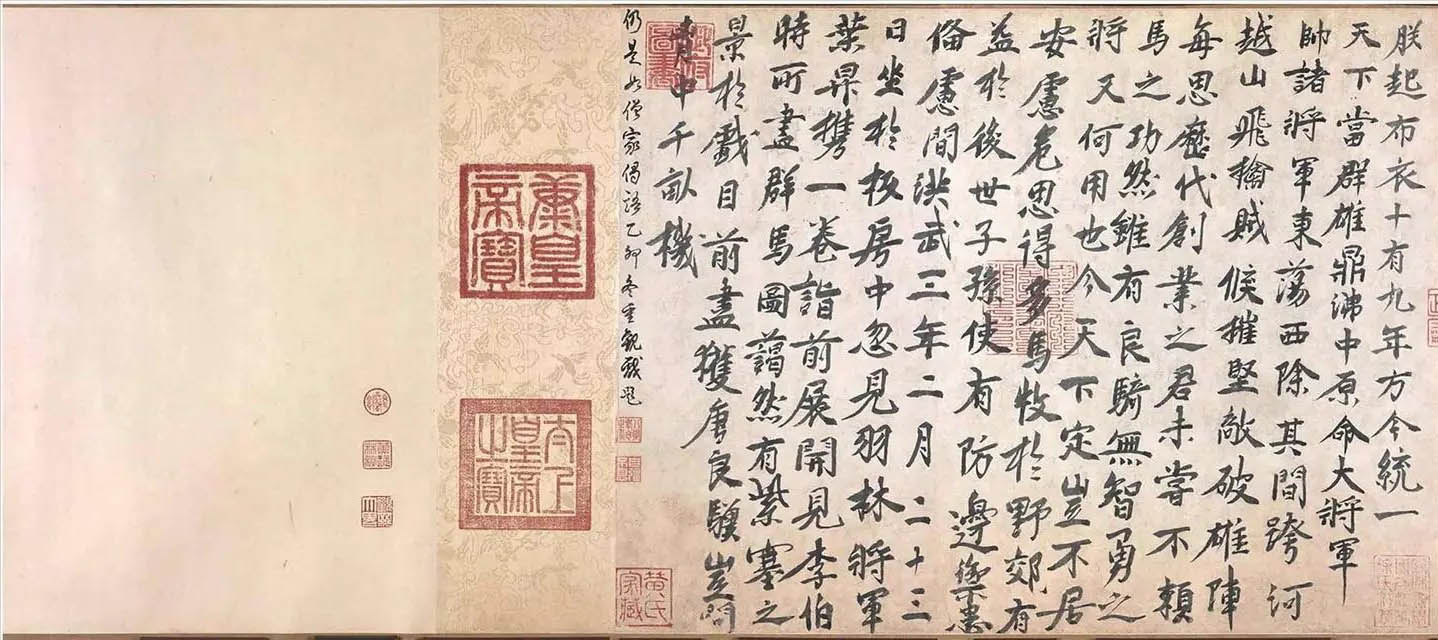 朕起布衣十有九年方今統一
天下當群雄鼎沸中原命大將軍
帥諸將軍東蕩西除其間跨河
越山飛擒賊候摧堅敵破雄陣
每思歷代創業之君未嘗不賴
馬之功然雖有良騎無智勇之
將又何用也今天下定豈不居
安慮危思得多馬牧於野郊有
益於後世子孫使有防邊逐患
俻慮間洪武三年二月二十三
日坐於板房中忽見羽林將軍
葉昇携一卷詣前展開見李伯
時所畫群馬圖藹然有紫塞之
景於戲目前盡獲唐良驥豈問
胷中千畝機
仍是如僧家偈語乙卯冬重觀戲題
黃氏家藏
太上皇帝之寶